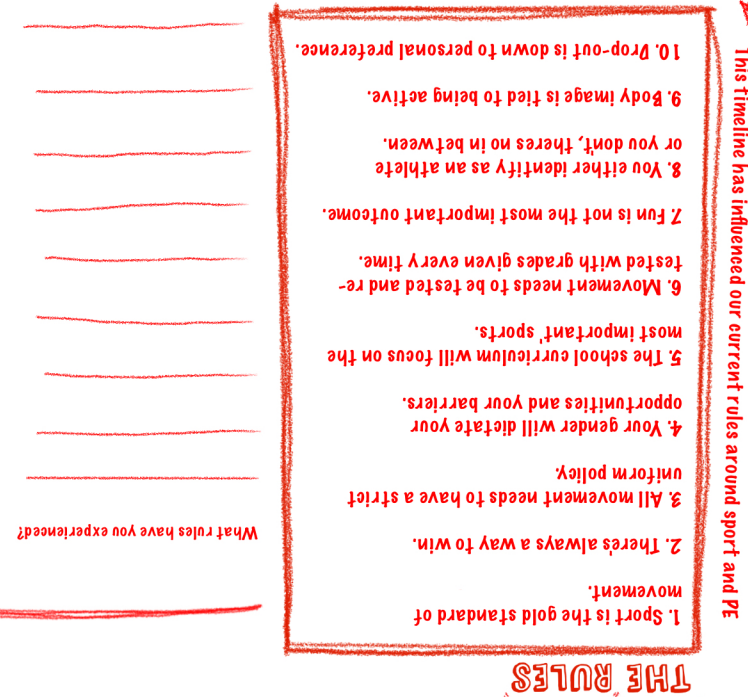 "THE RULES"
1. Sport is the gold standard of
movement.
2. There's always a way to win.
3. All movement needs to have a strict
uniform policy.
4. Your gender will dictate your
opportunities and your barriers.
5. The school curriculum will focus on the
most important' sports.
6. Movement needs to be tested and re-
tested with grades given every time.
7. Fun is not the most important outcome.
8. You either identify as an athlete
or you don't, theres no in between.
9. Body image is tied to being active.
10. Drop-out is down to personal preference.
What rules have you experienced?
This timeline has influenced our current rules around sport and PE